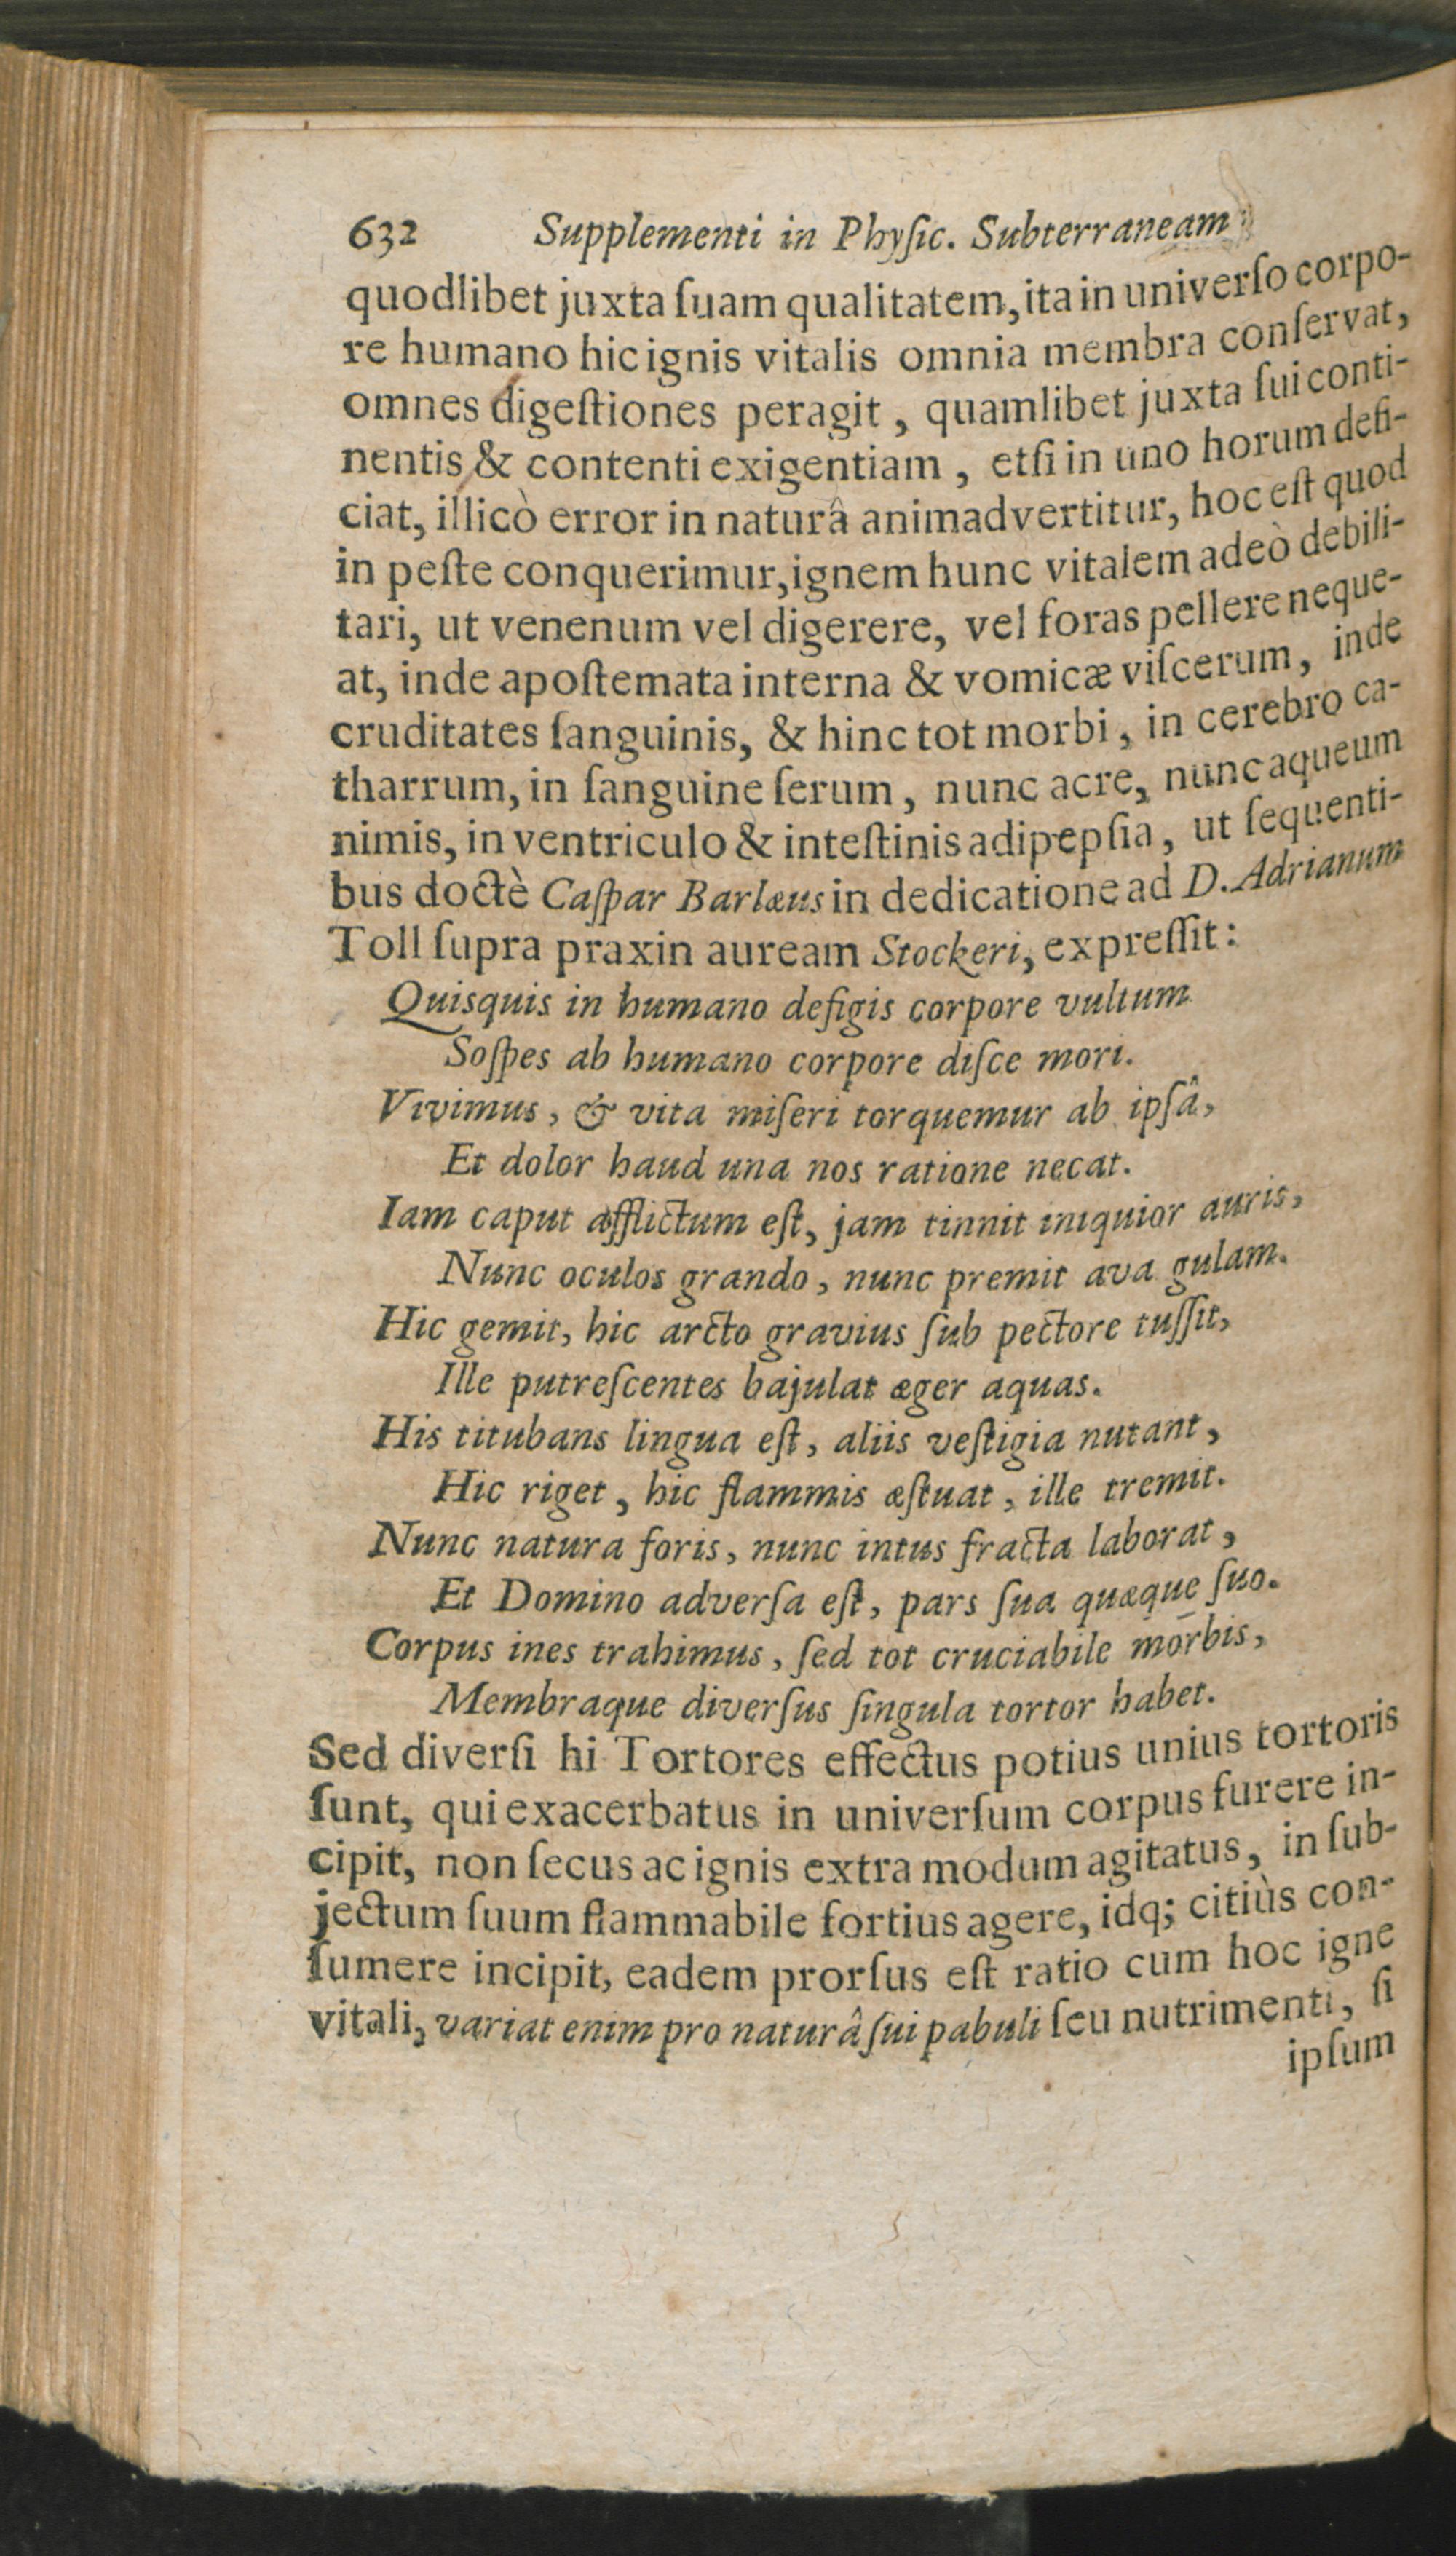 632 Supplementi in Phyſic. Subterraneam
quodlibet juxta ſuam qualitatem, ita in univerſo corpo-
re humano hic ignis vitalis omnia membra conſervat,
omnes digeſtiones peragit, quamlibet juxta ſui conti-
nentis & contenti exigentiam, etſi in uno horum defi-
ciat, illicò error in naturâ animadvertitur, hoc eſt quod
in peſte conquerimur, ignem hunc vitalem adeò debili-
tari, ut venenum vel digerere, vel foras pellere neque-
at, inde apoſtemata interna & vomicæ viſcerum, inde
cruditates ſanguinis, & hinc tot morbi, in cerebro ca-
tharrum, in ſanguine ſerum, nunc acre, nunc aqueum
nimis, in ventriculo & inteſtinis adipepſia, ut ſequenti-
bus doctè Caſpar Barlæus in dedicatione ad D. Adrianum
Toll ſupra praxin auream Stockeri, expreſſit:
Quisquis in humano defigis corpore vultum
Soſpes ab humano corpore diſce mori.
Vivimus, & vita miſeri torquemur ab ipſâ,
Et dolor haud una nos ratione necat.
Iam caput afflictum eſt, jam tinnit iniquior auris,
Nunc oculos grando, nunc premit ava gulam.
Hic gemit, hic arcto gravius ſub pectore tuſſit,
Ille putreſcentes bajulat æger aquas.
His titubans lingua eſt, aliis veſtigia nutant,
Hic riget, hic flammis æſtuat, ille tremit.
Nunc natura foris, nunc intus fracta laborat,
Et Domino adverſa eſt, pars ſua quæque ſuo.
Corpus ines trahimus, ſed tot cruciabile morbis,
Membraque diverſus ſingula tortor habet.
Sed diverſi hi Tortores effectus potius unius tortoris
ſunt, qui exacerbatus in univerſum corpus furere in-
cipit, non ſecus ac ignis extra modum agitatus, in ſub-
jectum ſuum flammabile fortius agere, idq; citiùs con-
ſumere incipit, eadem prorſus eſt ratio cum hoc igne
vitali, variat enim pro naturâ ſui pabuli ſeu nutrimenti, ſi
ipſum